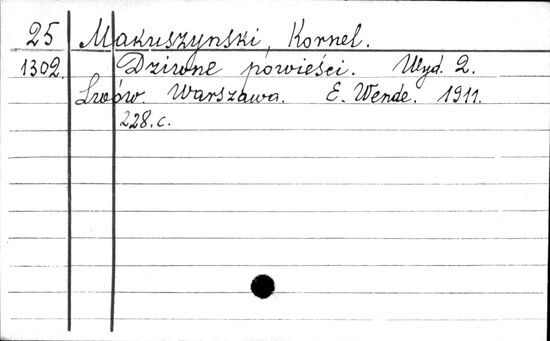 25 Makuszynski, Kornel.
1302. Dziwne powieści. Wyd. 2.
Lwów. Warszawa. E. Wende. 1911.
228.c.